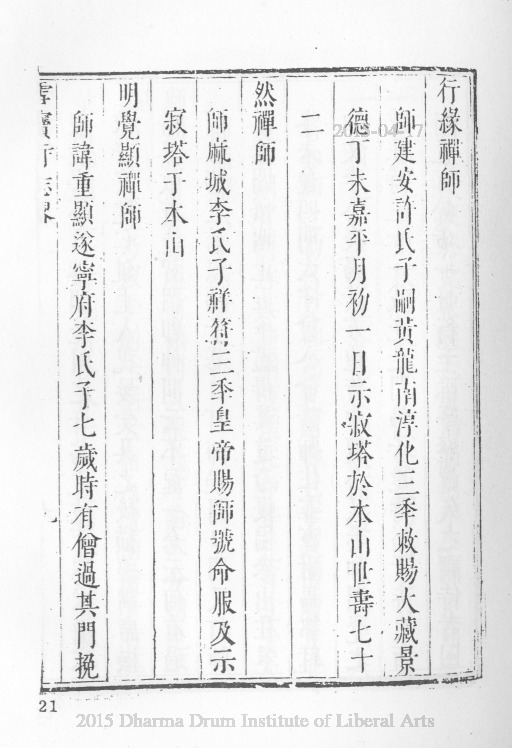 行緣禪師
師建安許氏子嗣黃龍南淳化三秊敕賜大藏景
德丁未嘉平月初一日示寂塔於本山世壽七十
二
然禪師
師麻城李氏子祥符三秊皇帝賜師號命服及示
寂塔于本山
明覺顯禪師
師諱重顯遂寧府李氏子七歲時有僧過其門挽
雪竇寺志畧
21
2015 Dharma Drum Institute of Liberal Arts